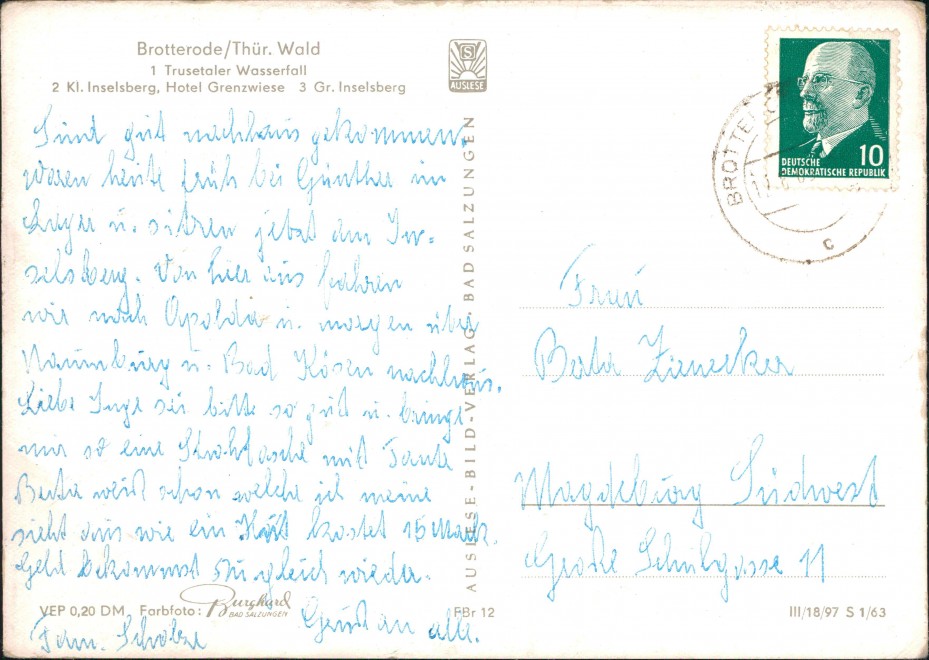 Brotterode/Thür. Wald
1 Trusetaler Wasserfall
2 Kl. Inselsberg, Hotel Grenzwiese 3 Gr. Inselsberg
S
AUSLESE
Sind gut nachhaus gekommen.
Waren heute früh bei Günther im
Lager u. sitzen jetzt am In=
selsberg. Von hier aus fahren
wir nach Apolda u. morgen über
Naumburg u. Bad Kösen nachhaus.
Liebe Inge sei bitte so gut u. bringe
mir so eine Strohtasche mit Tante
Berta weiß schon welche ich meine
sieht aus wie ein Hut kostet 15 Mark.
Geld bekommst Du gleich wieder.
Gruß an alle.
Fam. Scholze
VEP 0,20 DM, Farbfoto: Burghard
BAD SALZUNGEN
FBr 12
AUSLESE-BILD-VERLAG·BAD SALZUNGEN
DEUTSCHE
DEMOKRATISCHE REPUBLIK
10
C
Frau
Berta
Magdeburg Südwest
Große Schulgasse 11
III/18/97 S 1/63